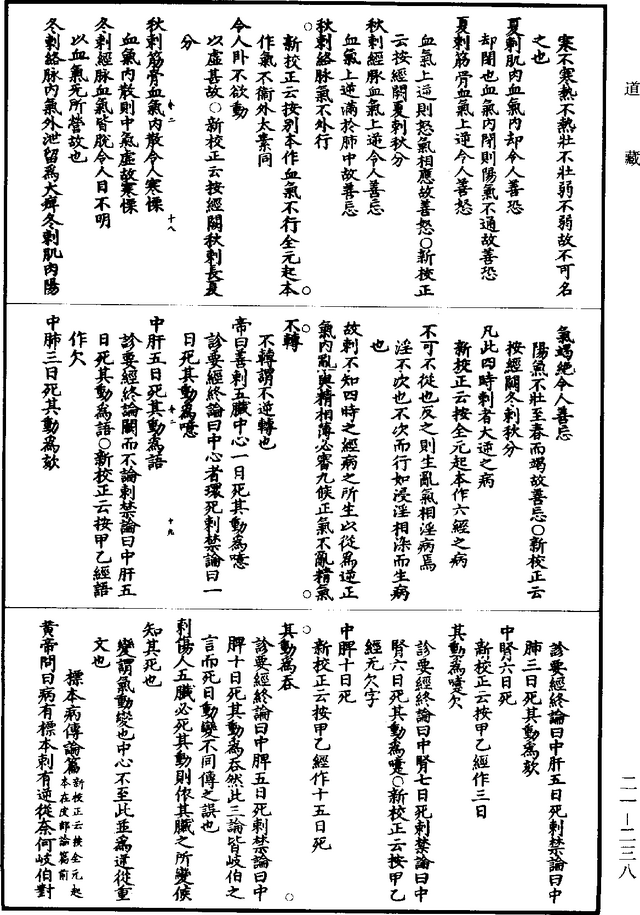 道藏
寒不寒熱不熱壯不壯弱不弱故不可名
之也
夏刺肌肉血氣內却令人善恐
却閉也血氣內閉則陽氣不通故善恐
夏刺筋骨血氣上逆令人善怒
血氣上逆則怒氣相應故善怒○新校正
云按經闕夏刺秋分
秋刺經脈血氣上逆令人善忘
血氣上逆滿於肺中故善忘
秋刺絡脉氣不外行
新校正云按别本作血氣不行全元起本
作氣不衛外太素同
令人卧不欲動
以虛甚故○新校正云按經闕秋刺長夏
分
秋刺筋骨血氣內散令人寒慄
血氣內散則中氣虛故寒慄
冬刺經脉血氣皆脫令人目不明
以血氣无所營故也
冬刺絡脉內氣外泄留爲大痺冬刺肌肉陽
氣竭絶令人善忘
陽氣不壯至春而竭故善忘○新校正云
按經闕冬刺秋分
凡此四時刺者大逆之病
新校正云按全元起本作六經之病
不可不從也反之則生亂氣相淫病焉
淫不次也不次而行如浸淫相染而生病
也
故刺不知四時之經病之所生以從爲逆正
氣內亂與精相薄必審九候正氣不亂精氣
不轉
不轉謂不逆轉也
帝曰善刺五臟中心一日死其動爲噫
診要經終論曰中心者環死刺禁論曰一
日死其動爲噫
中肝五日死其動爲語
診要經終論闕而不論刺禁論曰中肝五
日死其動爲語○新校正云按甲乙經語
作欠
中肺三日死其動爲欬
診要經終論曰中肝五日死刺禁論曰中
肺三日死其動爲欬
中腎六日死
新校正云按甲乙經作三日
其動爲嚏欠
診要經終論曰中腎七日死刺禁論曰中
腎六日死其動爲嚏○新校正云按甲乙
經无欠字
中脾十日死
新校正云按甲乙經作十五日死
其動爲吞
診要經終論曰中脾五日死刺禁論曰中
脾十日死其動爲吞然此三論皆岐伯之
言而死日動變不同傳之誤也
刺傷人五臟必死其動則依其臟之所變候
知其死也
變謂氣動變也中心下至此並爲逆從重
文也
標本病傳論篇新校正云按全元起本在皮部論篇前
黄帝問曰病有標本刺有逆從奈何岐伯對
二一—二三八